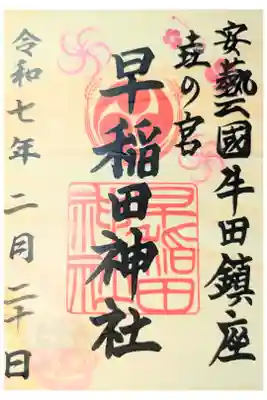 安藝國牛田鎮座
の宮
早稲田神社
早稲田
神社
令和七年 二月二十日